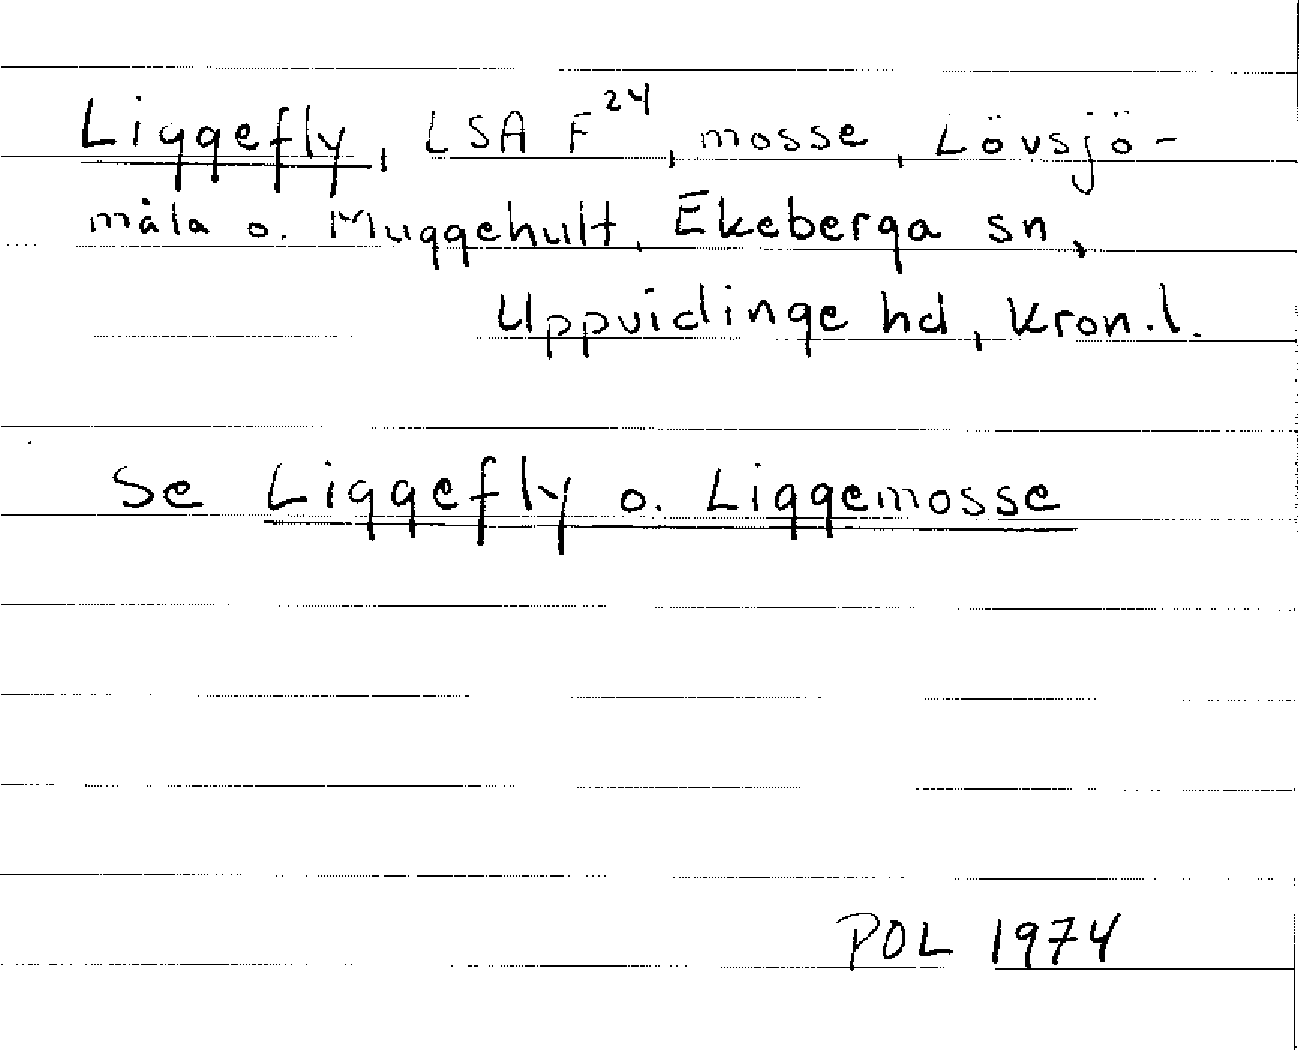 Liggefly, LSA F²⁴, mosse, Lövsjö-
måla o. Muggehult, Ekeberga sn,
Uppvidinge hd, Kron.l.
Se Liggefly o. Liggemosse
POL 1974